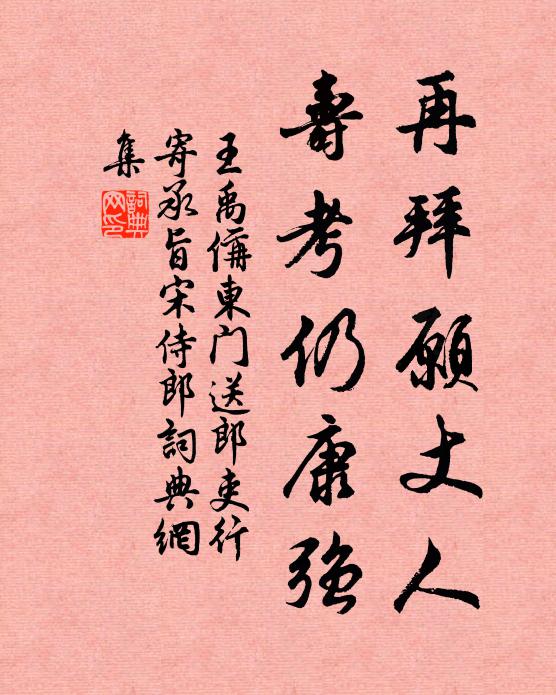 再拜願丈人
壽考仍康強
王禹偁東門送郎吏行
寄承旨宋侍郎詞典網
集
詞典
网印